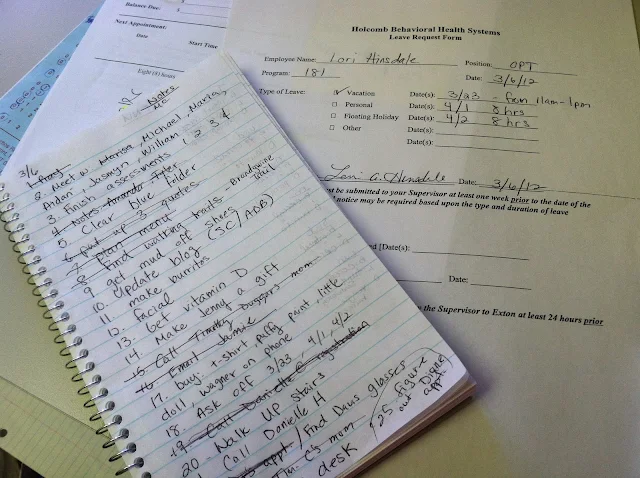 Balance Due:
Next Appointment:
Date
Start Time
Eight (8) hours
Holcomb Behavioral Health Systems
Leave Request Form
Employee Name: Lori Hinsdale Position: OPT
Program: 181 Date: 3/6/12
Type of Leave: Vacation Date(s): 3/23 - from 11am-1pm
Personal Date(s): 4/1 8 hrs
Floating Holiday Date(s): 4/2 8 hrs
Other Date(s):
Date(s):
Lori A. Hinsdale Date: 3/6/12
be submitted to your Supervisor at least one week prior to the date of the
notice may be required based upon the type and duration of leave
ed [Date(s):
Date:
the Supervisor to Exton at least 24 hours prior
Notes
me
3/6
2. Meet w Marisa, Michael, Maria,
Aidan, Jasmyn, William
3. Finish assessments 1 2 3 4
4. Notes Amanda Tyler
5. Clear blue folder
6. Put up 3 quotes
7. plan menu
8. Find walking trails - Brandywine
9. get mud off shoes
10. Update blog (SC/ADB)
11. make burritos
12. facial
13. Get vitamin D
14. Make Jenny a gift
15. Call Timothy Duggers mom
16. Email Jamie
17. buy: t-shirt puffy paint, little
doll, wagner on phone
18. Ask off 3/23, 4/1, 4/2
19. Call Danielle @ registration
20. Walk UP stairs
Call Danielle H
appt / Find Daves glasses
Tim C's mom
desk
25 figure
out Digne
appt.